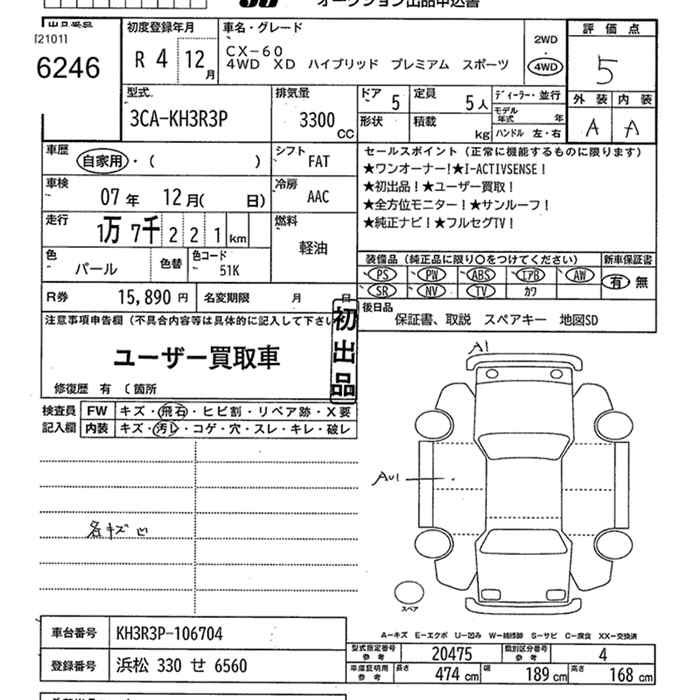 オークション出品申込書
出品番号
[2101]
6246
初度登録年月
R 4 12月
車名・グレード
CX-60
4WD XD ハイブリッド プレミアム スポーツ
2WD
・
4WD
評価点
5
外装 内装
A A
型式
3CA-KH3R3P
排気量
3300 CC
ドア 5
形状
定員 5人
積載 kg
ディーラー・並行
モデル年式 年
ハンドル 左・右
車歴
自家用・( )
シフト
FAT
車検
07年 12月( 日)
冷房
AAC
走行
1万7千221km
燃料
軽油
色
パール
色替
色コード
51K
R券 15,890円
名変期限 月 日
セールスポイント (正常に機能するものに限ります)
★ワンオーナー!★I-ACTIVSENSE!
★初出品!★ユーザー買取!
★全方位モニター!★サンルーフ!
★純正ナビ!★フルセグTV!
装備品 (純正品に限り○をつけてください)
新車保証書
PS PW ABS エアB AW
SR NV TV カワ
有・無
後日品
保証書、取説 スペアキー 地図SD
注意事項申告欄(不具合内容等は具体的に記入して下さい
初出品
ユーザー買取車
修復歴 有 〔箇所
検査員記入欄
FW キズ・飛石・ヒビ割・リペア跡・X要
内装 キズ・汚レ・コゲ・穴・スレ・キレ・破レ
A1
AU1
各キズ凹
スペア
A―キズ E―エクボ U―凹み W―補修跡 S―サビ C―腐食 XX―交換済
車台番号 KH3R3P-106704
登録番号 浜松 330 せ 6560
型式指定番号参考 20475
類別区分番号参考 4
車庫証明用参考 長さ 474 cm 幅 189 cm 高さ 168 cm